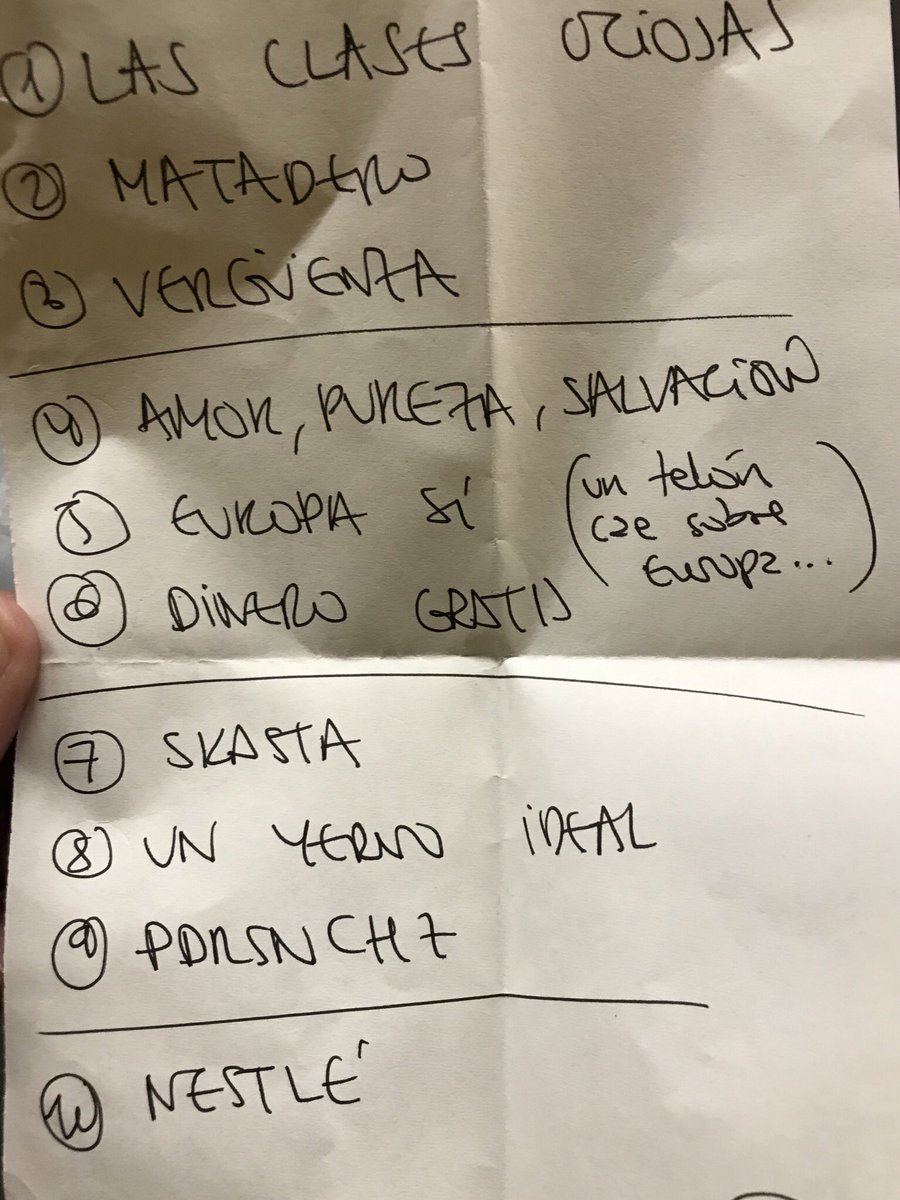 1 LAS CLASES OCIOSAS
2 MATADERO
3 VERGÜENZA
4 AMOR, PUREZA, SALVACIÓN
5 EUROPA SÍ (un telón
cae sobre
Europa...)
6 DINERO GRATIS
7 SKASTA
8 UN YERNO IDEAL
9 PDRSNCHZ
10 NESTLÉ